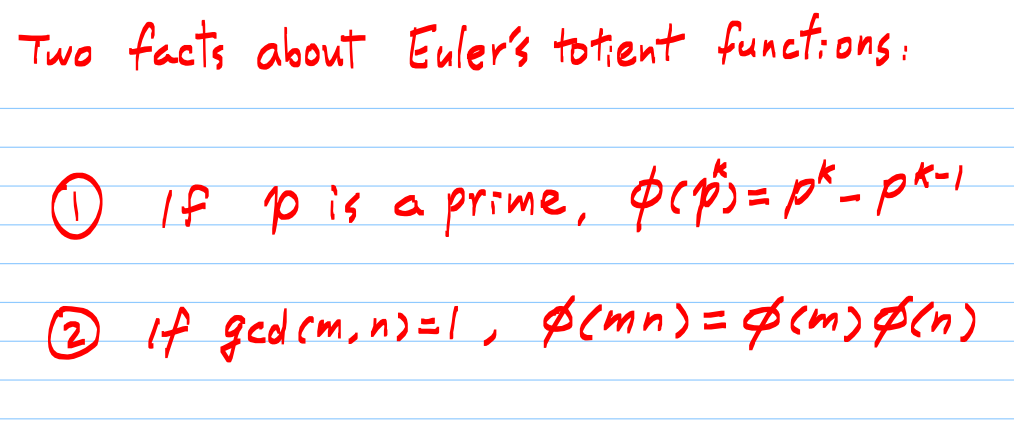 Two facts about Euler's totient functions:
① If p is a prime, ϕ(p^k) = p^k - p^{k-1}
② if gcd(m, n)=1, ϕ(mn) = ϕ(m)ϕ(n)